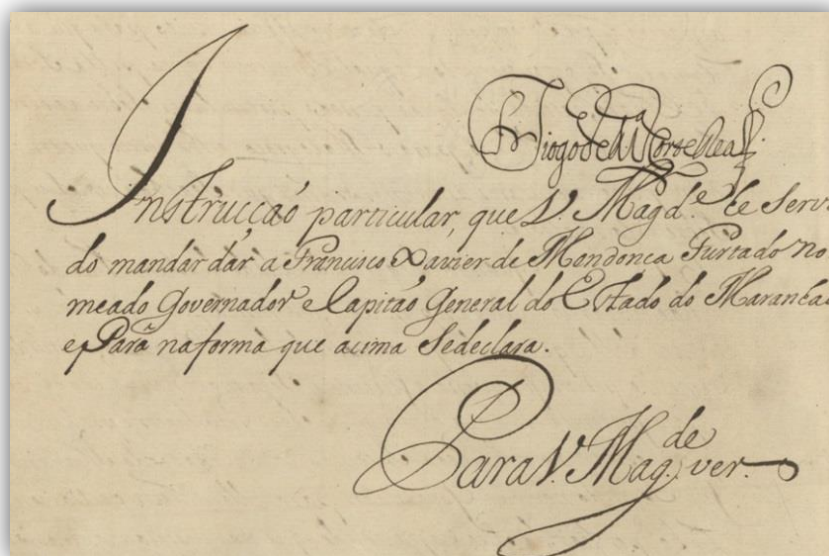 Diogo de M.ça Corte Real
Instrucçaõ particular, que V. Magd.e he Servi
do mandar dár a Francisco Xavier de Mendonca Furtado no
meado Governador e Capitaõ General do Estado do Maranhaõ
e Pará na forma que acima Se declara.
Para V. Mag.de ver.